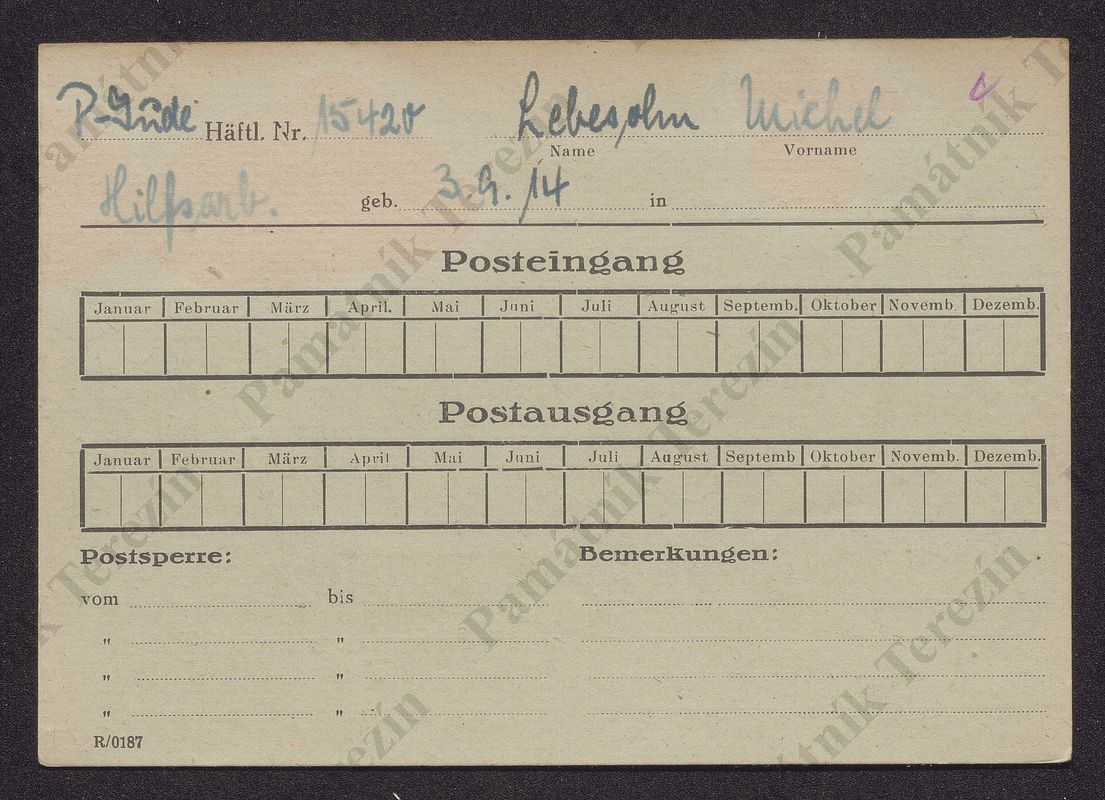 P-Jude Häftl. Nr. 15420 Lebesohn Michel
Name Vorname
Hilfsarb. geb. 3.9.14 in
Posteingang
Januar Februar März April. Mai Juni Juli August Septemb. Oktober Novemb. Dezemb.
Postausgang
Januar Februar März April Mai Juni Juli August Septemb Oktober Novemb. Dezemb.
Postsperre: Bemerkungen:
vom bis
" "
" "
" "
R/0187
Památník Terezín